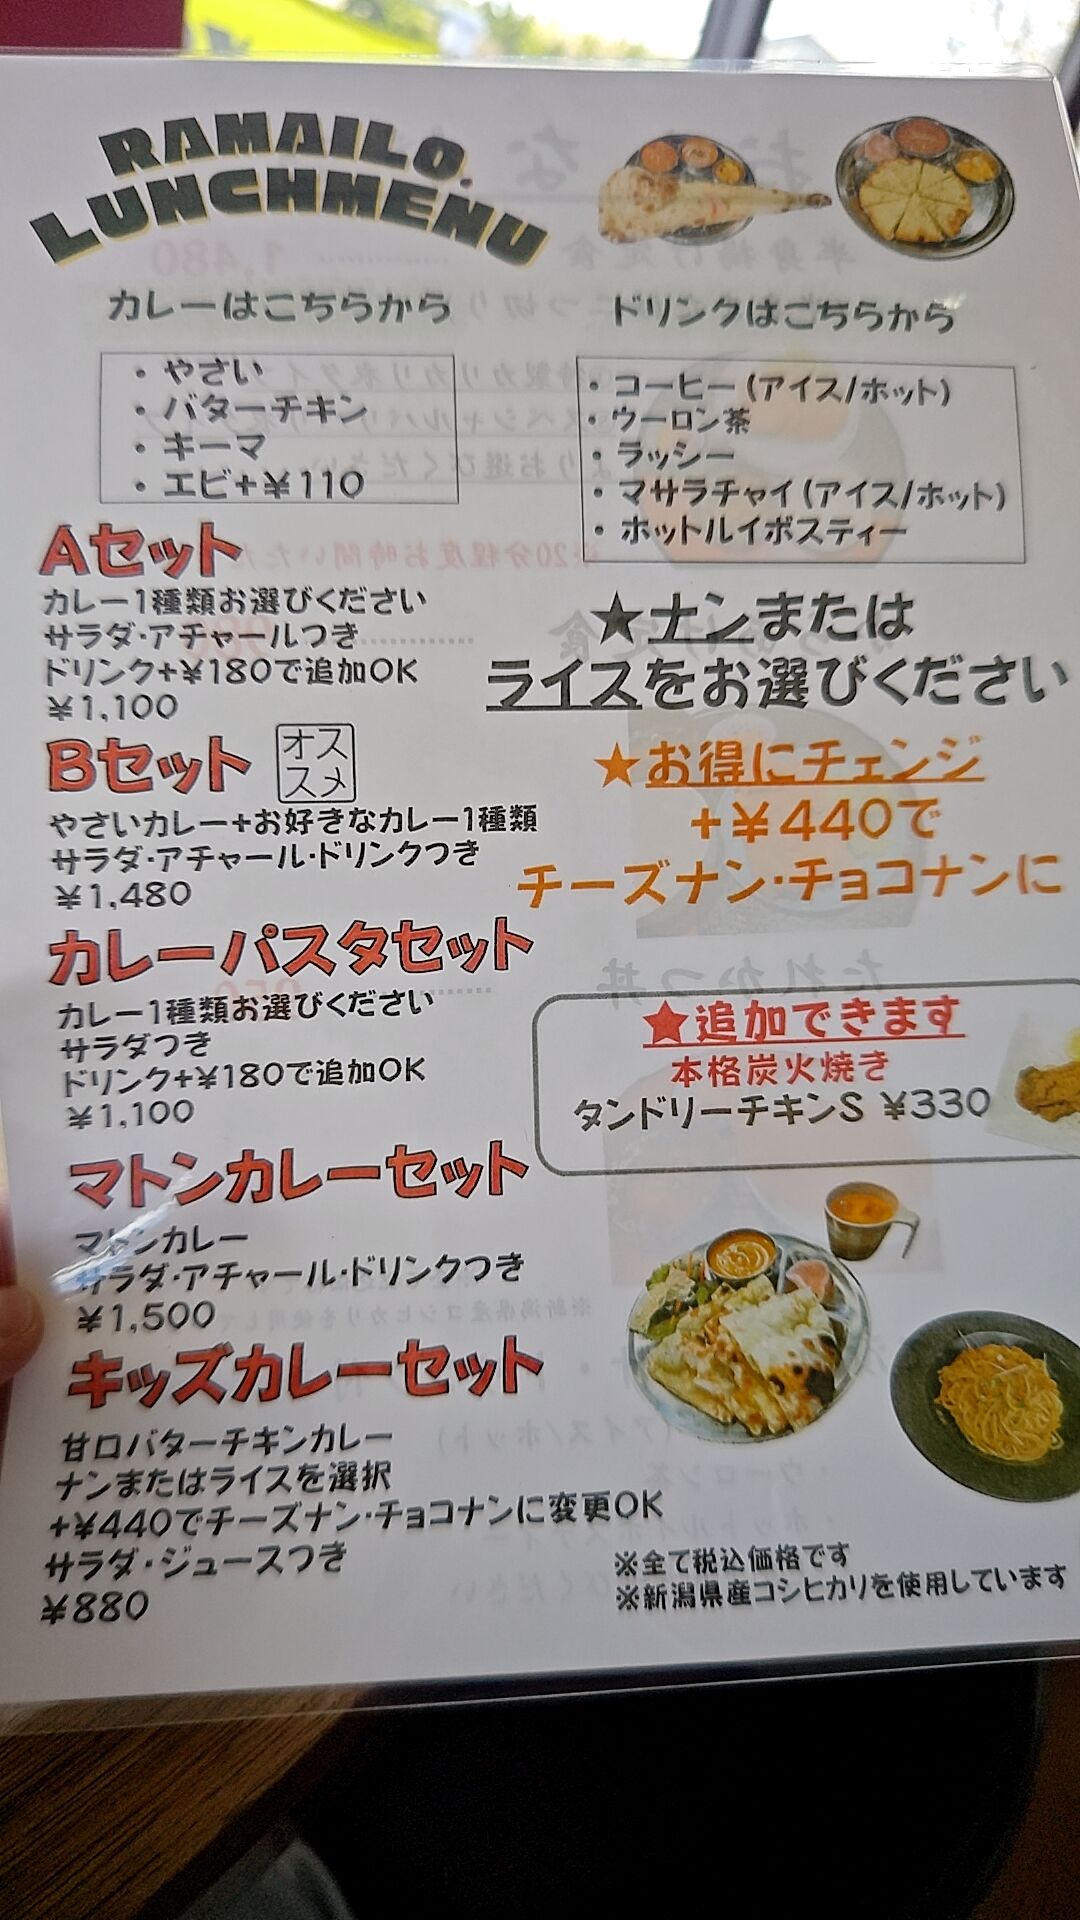 RAMAILO.
LUNCHMENU
カレーはこちらから
・やさい
・バターチキン
・キーマ
・エビ+¥110
ドリンクはこちらから
・コーヒー(アイス/ホット)
・ウーロン茶
・ラッシー
・マサラチャイ(アイス/ホット)
・ホットルイボスティー
Aセット
カレー1種類お選びください
サラダ・アチャールつき
ドリンク+¥180で追加OK
¥1,100
★ナンまたは
ライスをお選びください
Bセット
オス
スメ
やさいカレー+お好きなカレー1種類
サラダ・アチャール・ドリンクつき
¥1,480
★お得にチェンジ
+¥440で
チーズナン・チョコナンに
カレーパスタセット
カレー1種類お選びください
サラダつき
ドリンク+¥180で追加OK
¥1,100
★追加できます
本格炭火焼き
タンドリーチキンS ¥330
マトンカレーセット
マトンカレー
サラダ・アチャール・ドリンクつき
¥1,500
キッズカレーセット
甘口バターチキンカレー
ナンまたはライスを選択
+¥440でチーズナン・チョコナンに変更OK
サラダ・ジュースつき
¥880
※全て税込価格です
※新潟県産コシヒカリを使用しています